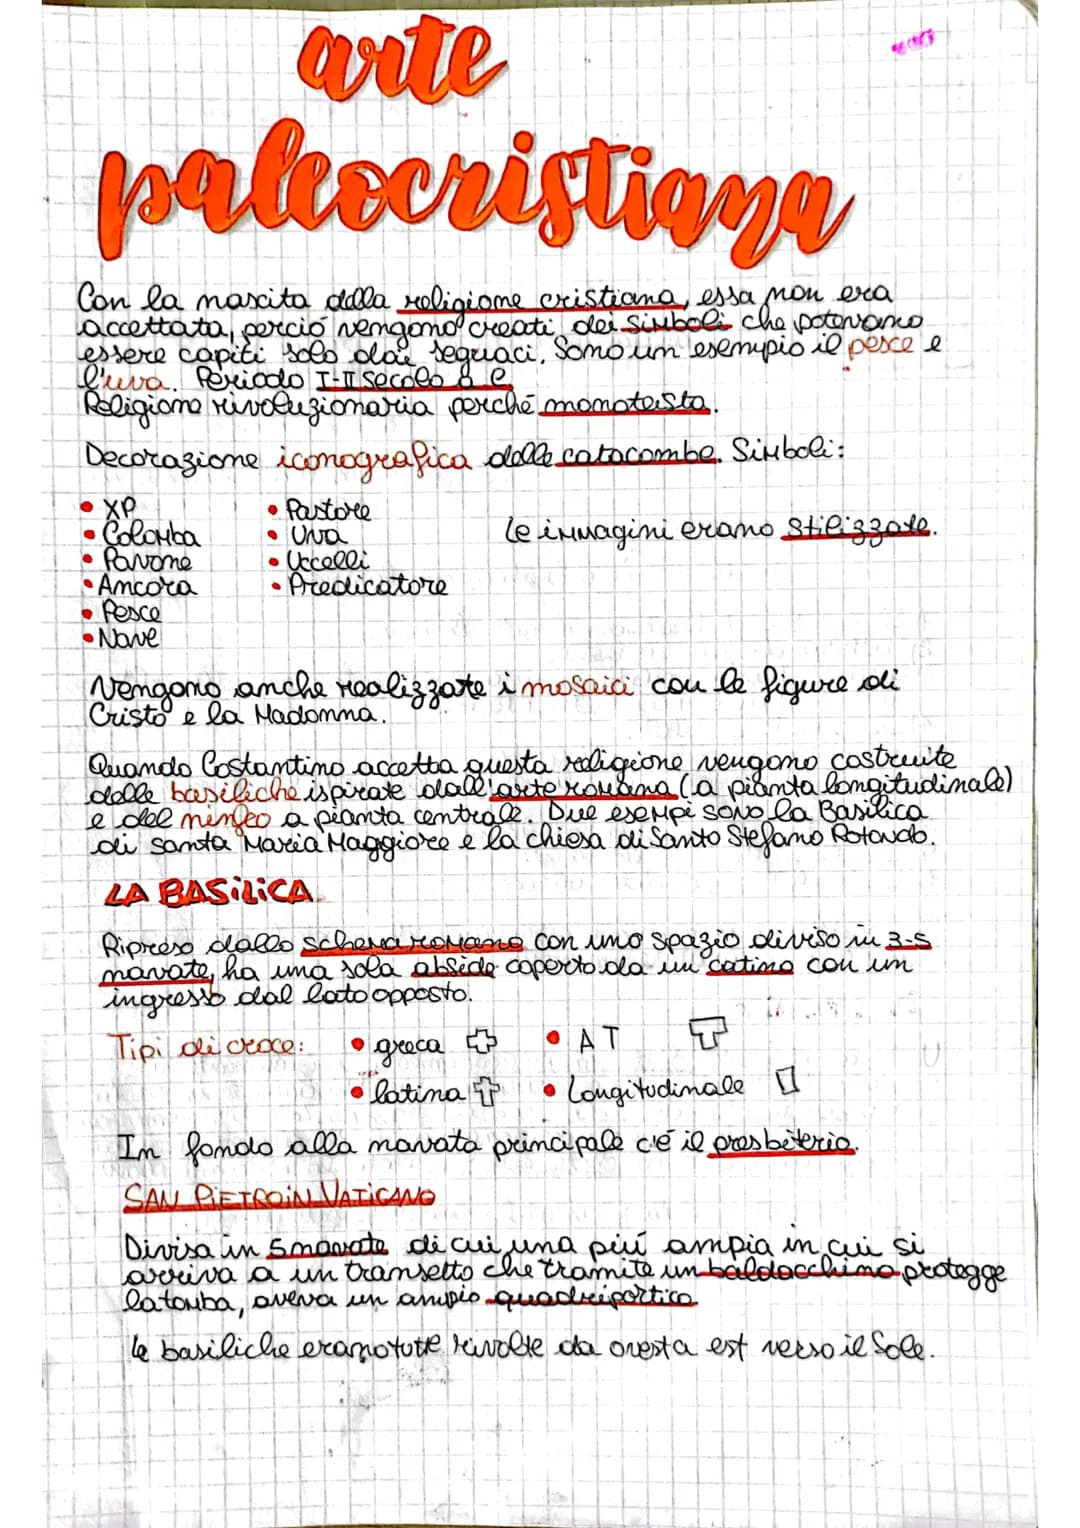 arte
paleocristiana
Con la nascita della religione cristiana, essa non era
accettata, perció vengono creati dei simboli che potevano
essere capiti solo dai seguaci. Sono un esempio il pesce e
l'uva. Periodo I-II secolo
Religione rivoluzionaria perché monoteista.
Decorazione iconografica delle catacombe. Simboli:
• XP
• Colomba
• Pavone
• Ancora
• Pesce
• Nave
• Pastore
• Uva
• Uccelli
• Predicatore
Le immagini erano stilizzate.
Vengono anche realizzate i mosaici con le figure di
Cristo e la Madonna.
Quando Costantino accetta questa religione vengono costruite
delle basiliche ispirate dall'arte romana (a pianta longitudinale)
e del ninfeo a pianta centrale. Due esempi sono la Basilica
di santa Maria Maggiore e la chiesa di Santo Stefano Rotondo.
LA BASILICA
Ripreso dallo schema romano con uno spazio diviso in 3-5
navate, ha una sola abside coperto da un catino con un
ingresso dal lato opposto.
Tipi di croce:
• greca
• A T
• latina
• Longitudinale
In fondo alla navata principale c'é il presbiterio.
SAN PIETRO IN VATICANO
Divisa in 5 navate di cui una piú ampia in cui si
arriva a un transetto che tramite un baldacchino protegge
la tomba, aveva un ampio quadriportico
Le basiliche erano tutte rivolte da ovest a est verso il Sole.